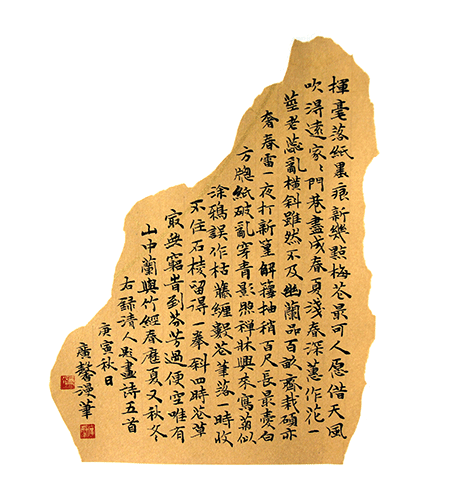 揮毫落紙墨痕新幾點梅花最可人愿借天風
吹淂遠家〻門巷盡成春夏淺春深蕙作花一
莖老蕊亂橫斜雖然不及幽蘭品百畝齊栽碩亦
奢春雷一夜打新篁解籜抽梢百尺長最愛白
方牕紙破亂穿青影照禪牀興來寫菊似
涂鴉誤作枯藤纏數花筆落一時收
不住石棱留得一拳斜四時花草
最無窮旹到芬芳過便空唯有
山中蘭與竹經春歷夏又秋冬
右録清人題畫詩五首
庚寅秋日
廣馨漫筆